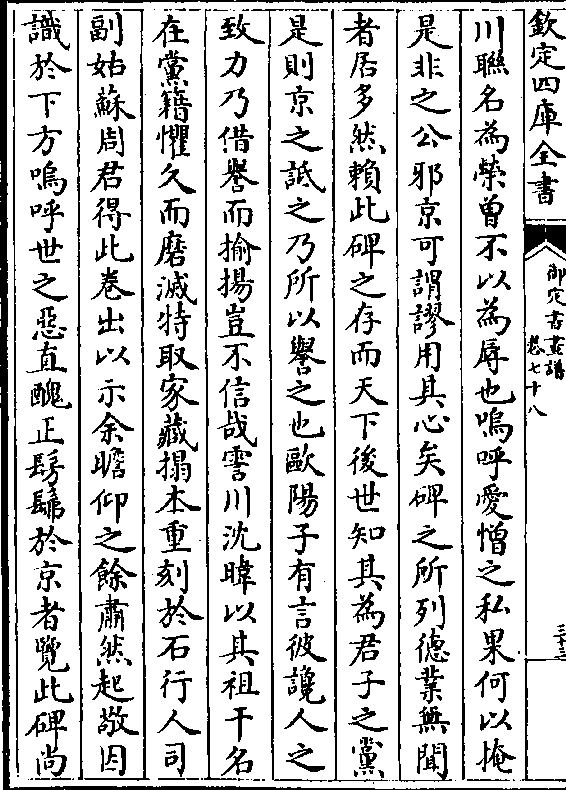 欽定四庫全書
御定書畫譜
卷七十八
三十三
川聯名為榮曾不以為辱也嗚呼愛憎之私果何以掩
是非之公邪京可謂謬用其心矣碑之所列德業無聞
者居多然賴此碑之存而天下後世知其為君子之黨
是則京之詆之乃所以譽之也歐陽子有言彼讒人之
致力乃借譽而揄揚豈不信哉霅川沈暐以其祖干名
在黨籍懼久而磨滅特取家藏搨本重刻於石行人司
副姑蘇周君得此卷出以示余瞻仰之餘肅然起敬因
識於下方嗚呼世之惡直醜正髣髴於京者覽此碑尚